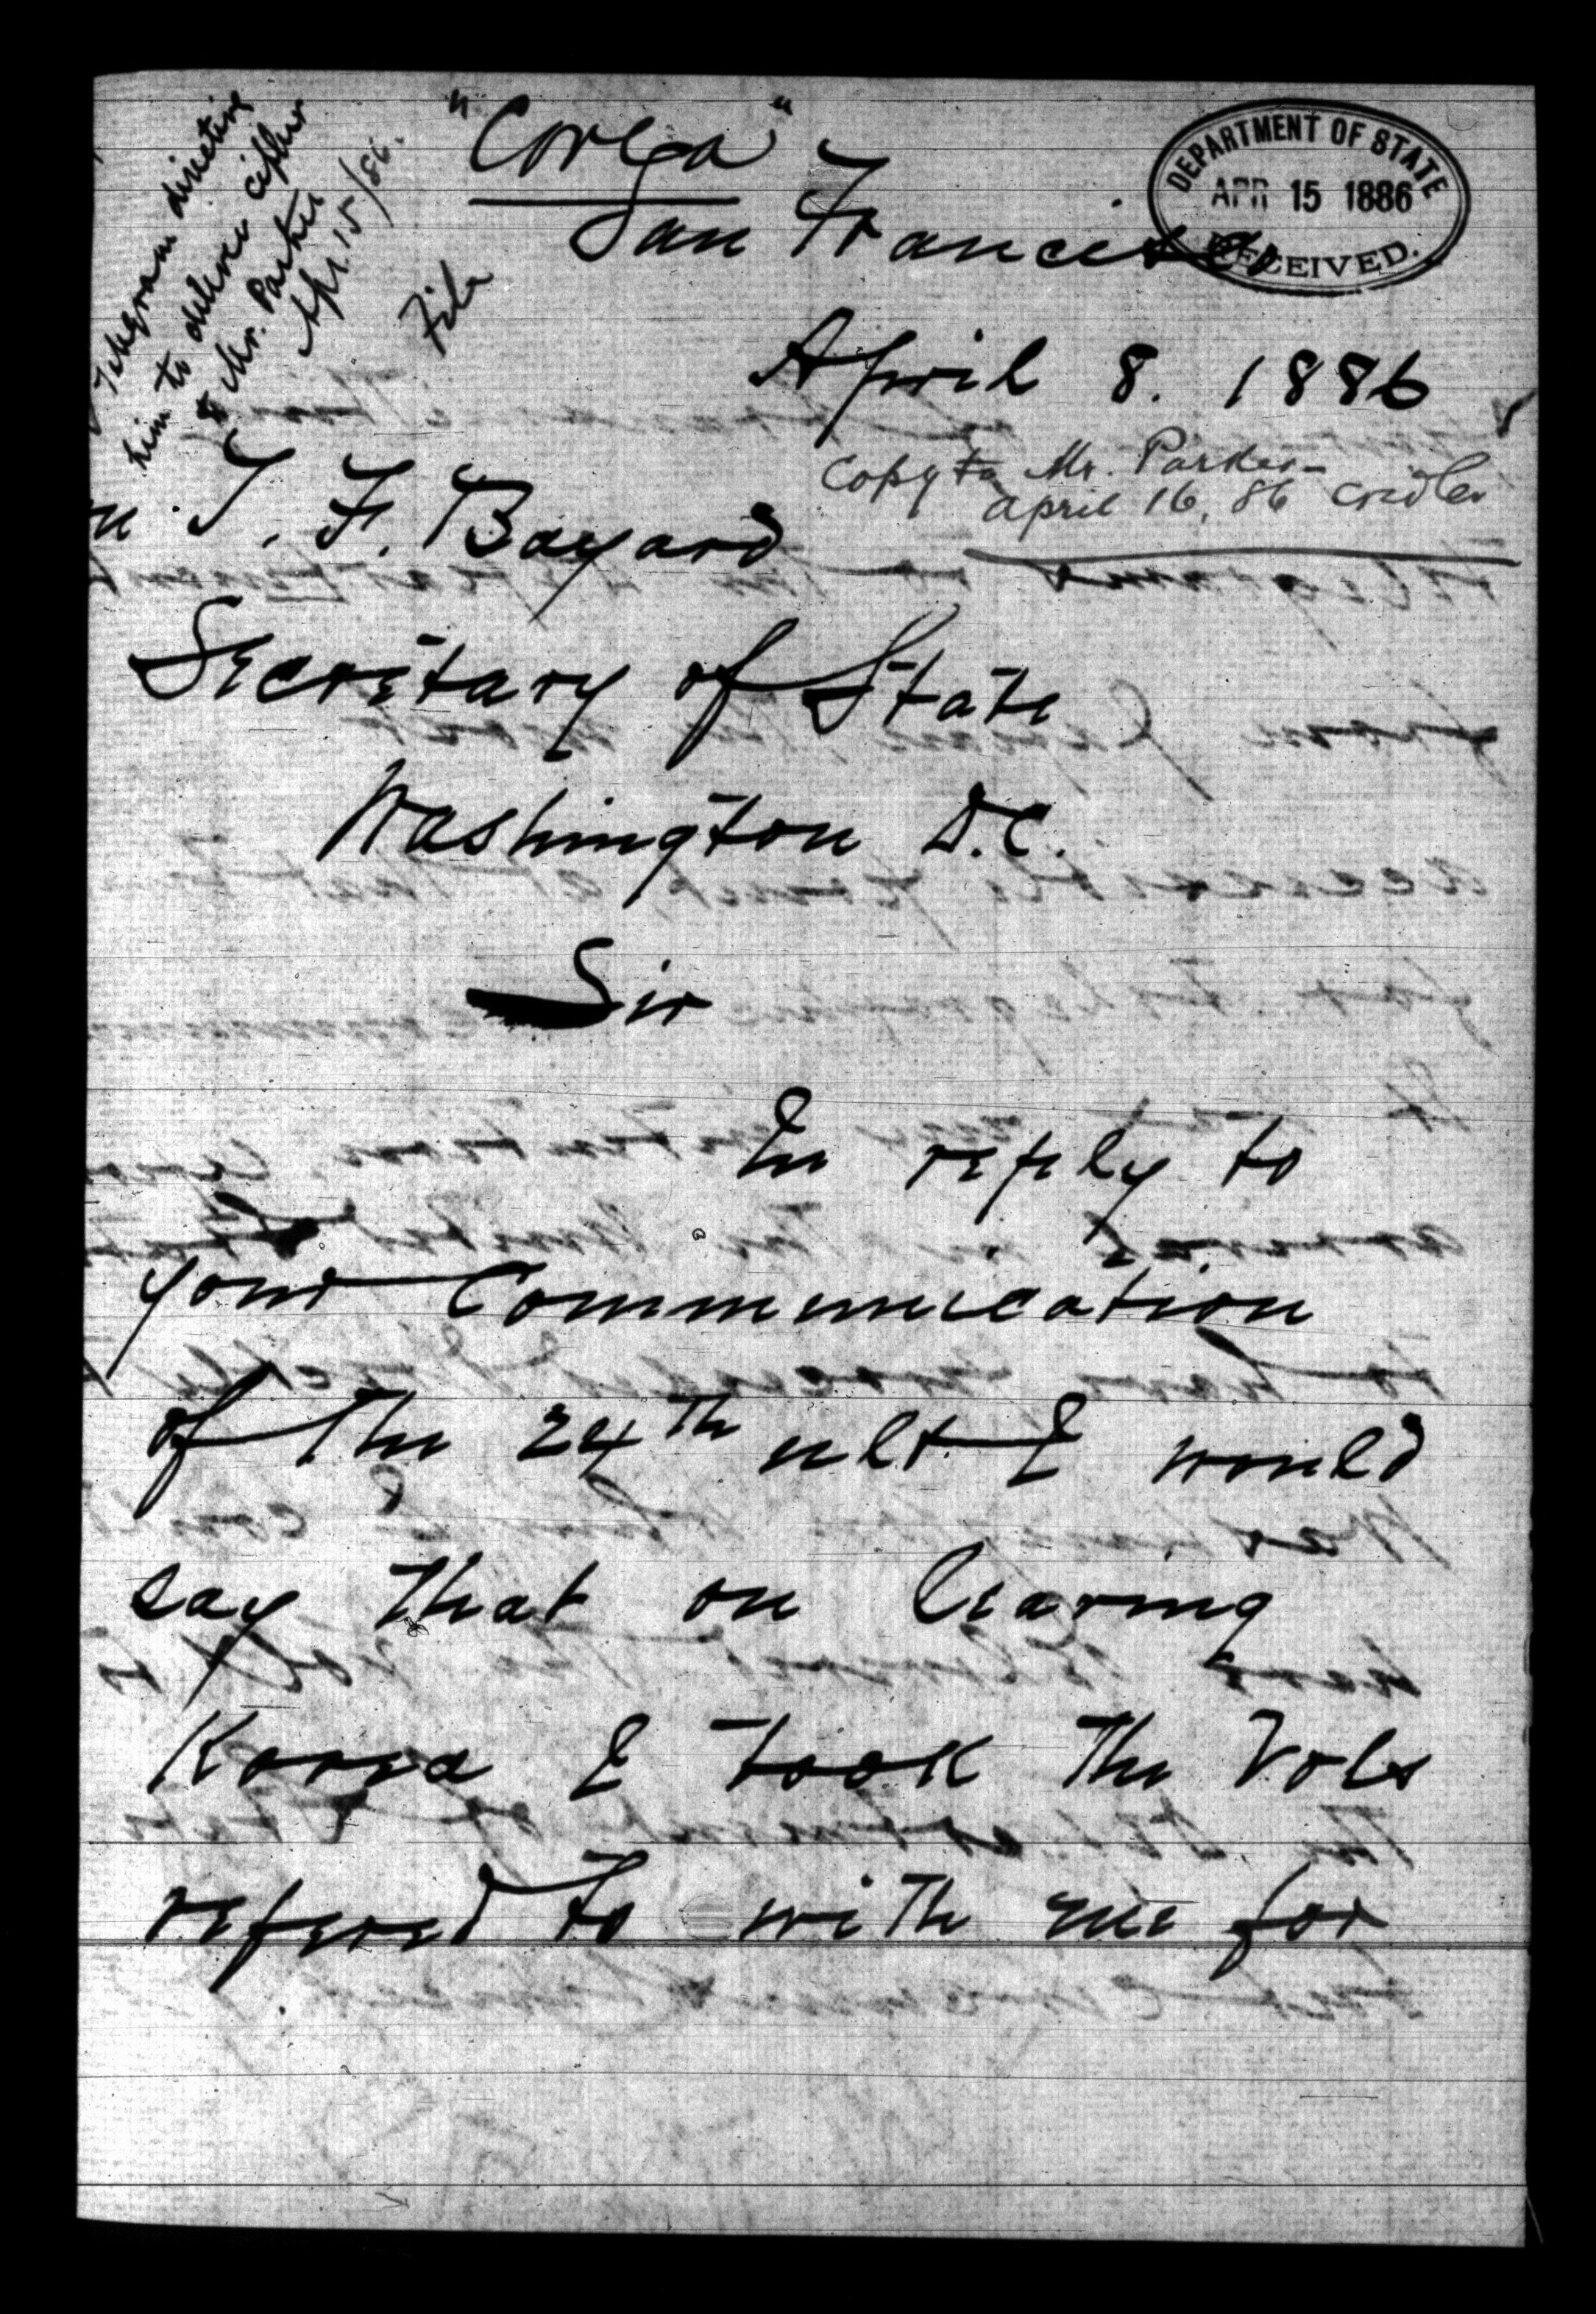 "Corea"
San Francisco
DEPARTMENT OF STATE
APR 15 1886
RECEIVED.
Telegram directing
him to deliver cipher
to Mr. Parker
Apr. 15/86.
File
April 8. 1886
Copy to Mr. Parker—
April 16, 86 Cridler
n. T. F. Bayard
Secretary of State
Washington D.C.
Sir
In reply to
your Communication
of the 24th ult I would
say that on leaving
Korea I took the Vols
refered to with me for